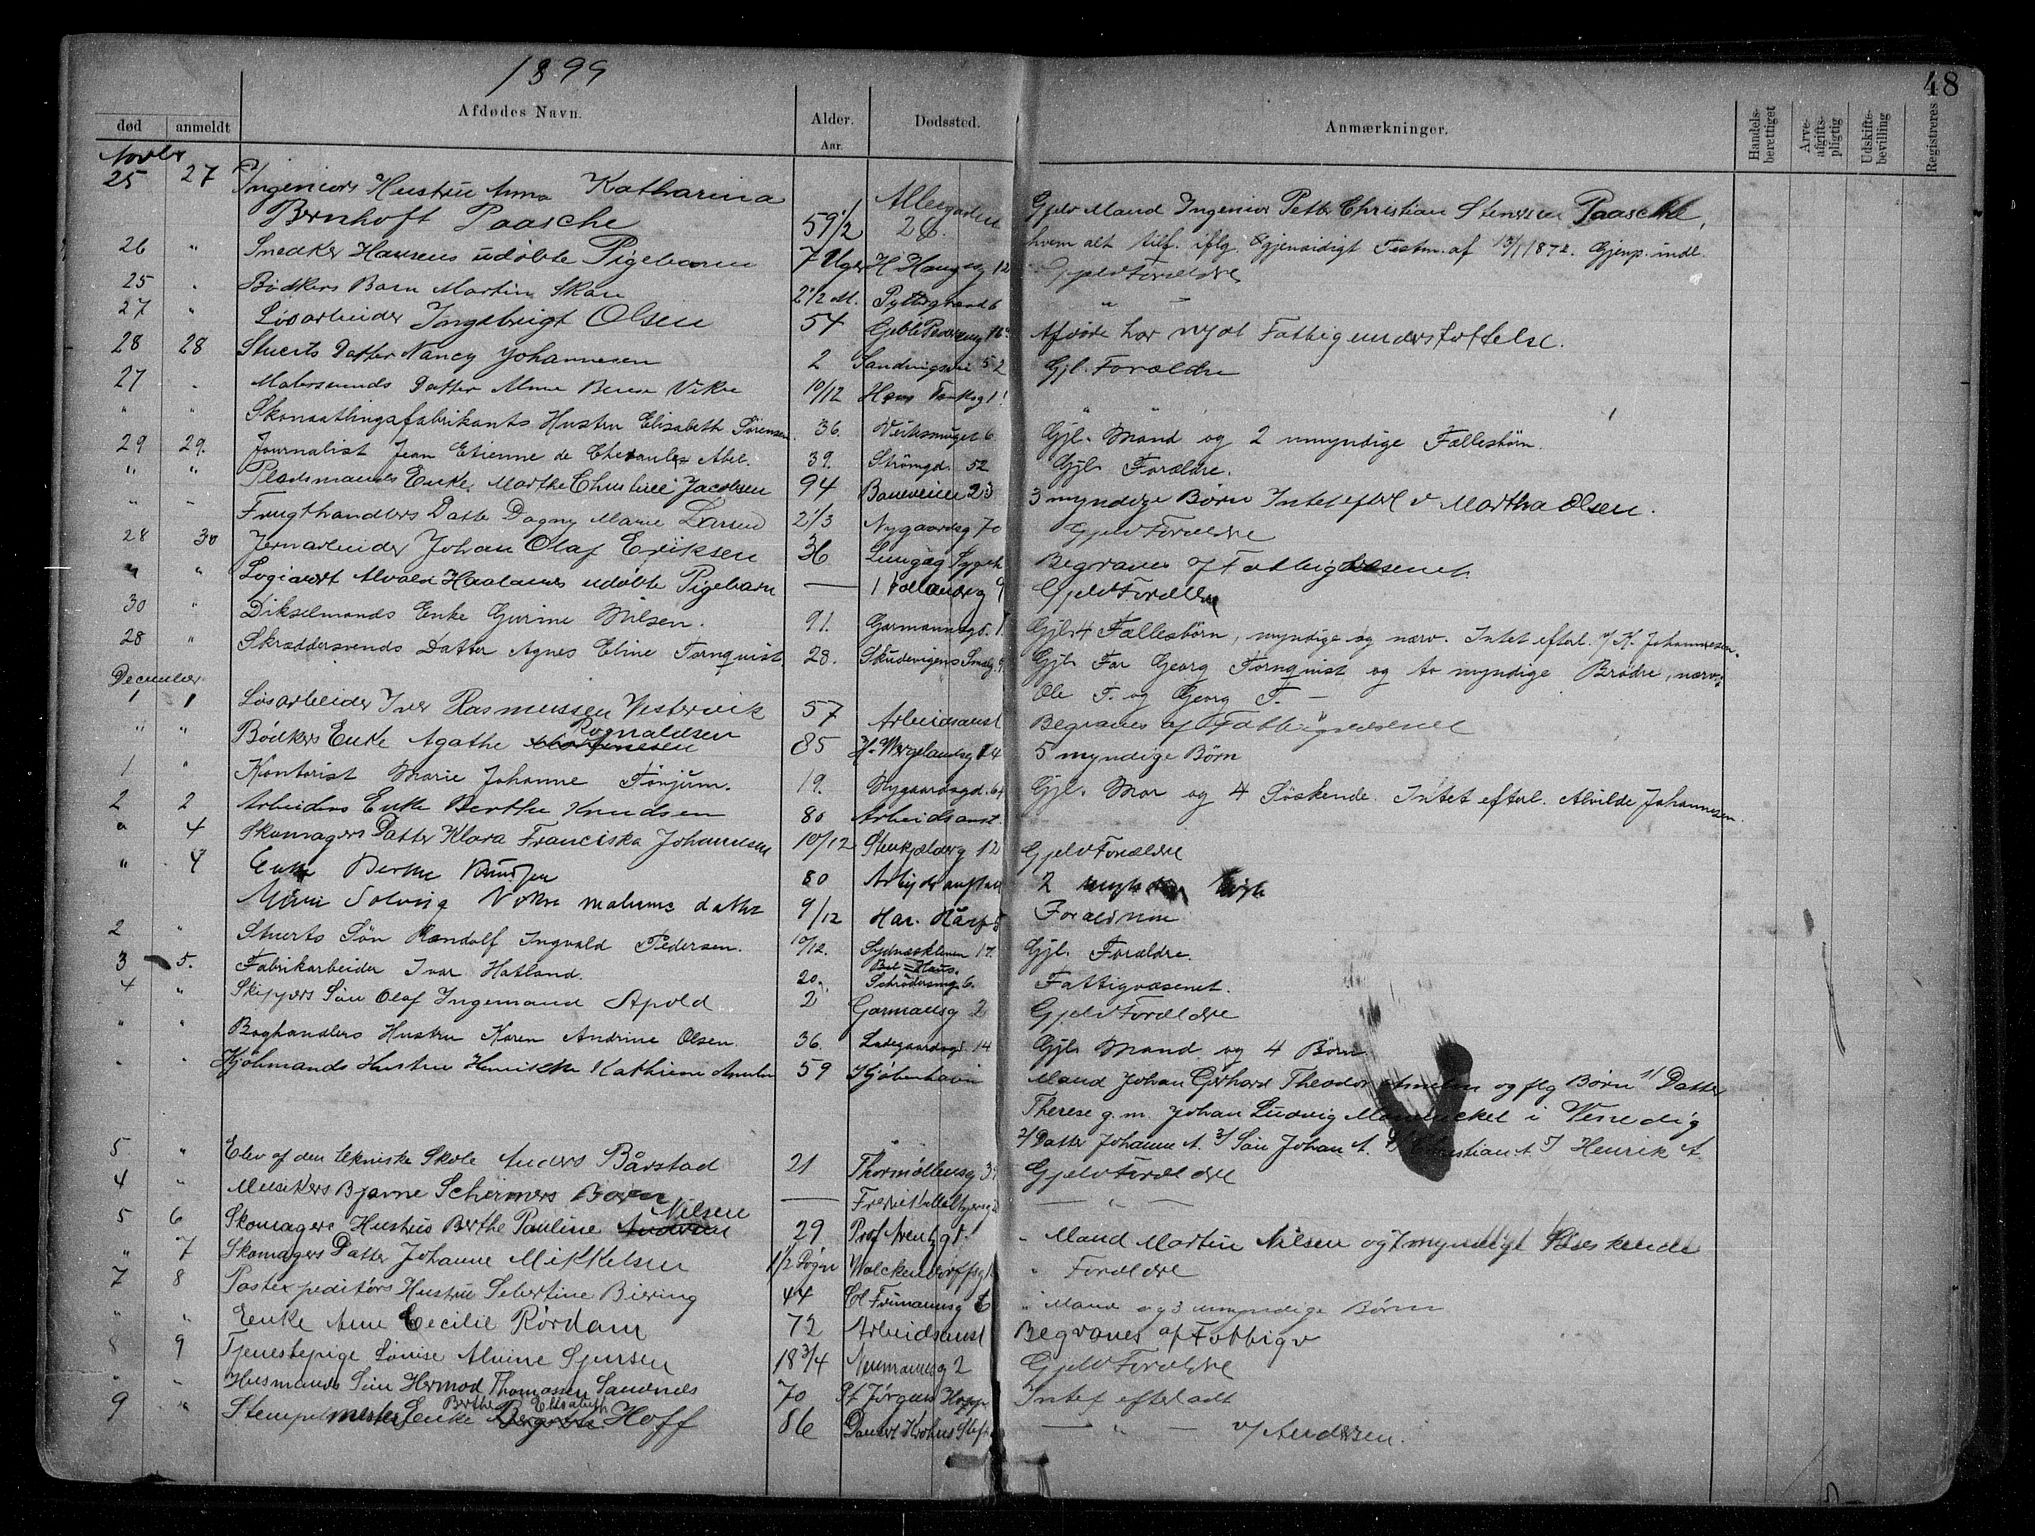 1899
48
død anmeldt Afdødes Navn. Alder. Aar. Dødssted. Anmærkninger. Handelsberettiget Arveafgiftspligtig Udskiftebevilling Registreres
Novbr
25 27 Ingeniørs Hustru Anna Katharina
Bernhoft Paasche 59 1/2 Alleegaden 26. Gjelv Mand Ingeniør Petter Christian Stenersen Paasche,
26 " Snedker Hansens udøbte Pigebarn 7 Uger H Haugesg 12 hvem alt tilf. iflg. gjensidigt Testm. af 13/1 1872. Gjenp. indl.
Gjelv Forældre
25 " Bødkers Barn Martin Skau 2 1/2 M. Pyttergrænd 6 " —
27 " Løsarbeider Ingebrigt Olsen 54 Gjeble Pedersensg 16 Afdøde har nydt Fattigunderstøttelse.
28 28 Stuerts Datter Nancy Johannesen 2 Sandvigsvei 52 Gjl. Forældre
27 " Malersvends Datter Alma Vikre 10/12 Hans Tanksg 1 " "
" " Skomaatlingsfabrikants Hustru Elisabeth Sørensen. 36. Veiksmuget 6 Gjl. Mand og 2 umyndige Fællesbørn.
29 29. Journalist Jean Etienne de Abel. 39. Strømgd. 52 Gjl. Forældre.
" " Pladsmands Enke Marthe Christine Jacobsen 94 Baneveien 23 3 myndige Børn Intet efterl v Martha Olsen.
" — Frugthandlers Datter Dagny Marie Larsen 2 1/3 Nygaardsg 70 Gjelv Forældre
28 30 Jernarbeider Johan Olaf Eriksen 36 Lungeg Sygeh Begraves af Fattigvæsenet
" " Logivert Alvald Haalands udøbte Pigebarn — Vollandsg 9 Gjelv Forældre
30 " Dikselmands Enke Gurine Nilsen. 91. Garmannsgd. 1. Gjl. 4 Fællesbørn, myndige og nærv. Intet efterl. v/ K. Johannesen.
28 " Skræddersvends Datter Agnes Eline Tornquist 28. Skudevigens Smalg 9 Gjl. Far Georg Tornquist og to myndige Brødre, nærv:
December Ole T. og Georg T. —
1 1 Løsarbeider Iver Rasmussen Vestervik 57 Arbeidsanst Begraves af Fattigvæsenet
" " Bødkers Enke Agathe Rognaldsen 85 H. Wergelandsg 14 5 myndige Børn
1 " Kontorist Marie Johanne Tønjum. 19. Nygaardsgd. 64 Gjl. Mor og 4 Søskende. Intet efterl. Alvilde Johannesen.
2 2 Arbeiders Enke Berthe Knudsen 80 Arbeidsanst.
" 4 Skomagers Datter Klara Franciska Johannesen 10/12 Stenkjelderg 12 Gjelv Forældre
" 4 Enke Berthe Knudsen 80 Arbeidsanstal 2
Marie Solveig Vikre malers datter 9/12 Har. Hårf 5 Forældrene
2 " Stuerts Søn Randolf Ingvald Pedersen. 10/12. Sydnæskleven 17. Gjl. Forældre.
3 5. Fabrikarbeider Ivar Hatland. 20 Bet = Haus. Schrødersmg 6. Fattigvæsenet.
4 " Skippers Søn Olaf Ingemand Apold 2 Garmansg 2 Gjelv Forældre
" " Boghandlers Hustru Karen Andrine Olsen. 36. Ladegaardsgd. 14 Gjl. Mand og 4 Børn
" " Kjøbmands Hustru Henriette Kathrine Ameln 59 Kjøbenhavn Mand Johan Gerhard Theodor Ameln og flg Børn 1/ Datter
Therese g. m. Johan Ludvig i Venedig
2/ Datter Johanne A. 3/ Søn Johan A. 4/ Christian A. 5/ Henrik A.
5 " Elev af den tekniske Skole Anders Bårstad 21 Thormøhlensg 3 Gjelv Forældre
4 " Musikers Bjarne Schirmers Barn — — " —
5 6 Skomagers Hustru Berthe Pauline Nilsen 29 Prof Arentzg 1. " Mand Martin Nilsen og 7 myndige Søskende
" 7 Skomagers Datter Johanne Mikkelsen 1 1/2 Døgn Walckendorffsg " Forældre
7 8 Postexpeditørs Hustru Sebertine Biering 44 Cl Frimannsg 6 " Mand og 3 umyndige Børn
" " Enke Ane Cecilie Rørdam 72 Arbeidsanst Begraves af Fattigv
8 9 Tjenestepige Lovise Alvine Sjursen 18 3/4 Neumannsg 2 Gjelv Forældre
" Husmands Søn Hermod Thomassen Sandnæs 70 St Jørgens Hosp Intet efterladt
9 " Stempelmesters Enke Berthe Elisabeth Hoff 86 Danckert Krohns Stift — " — v/ Andersen.